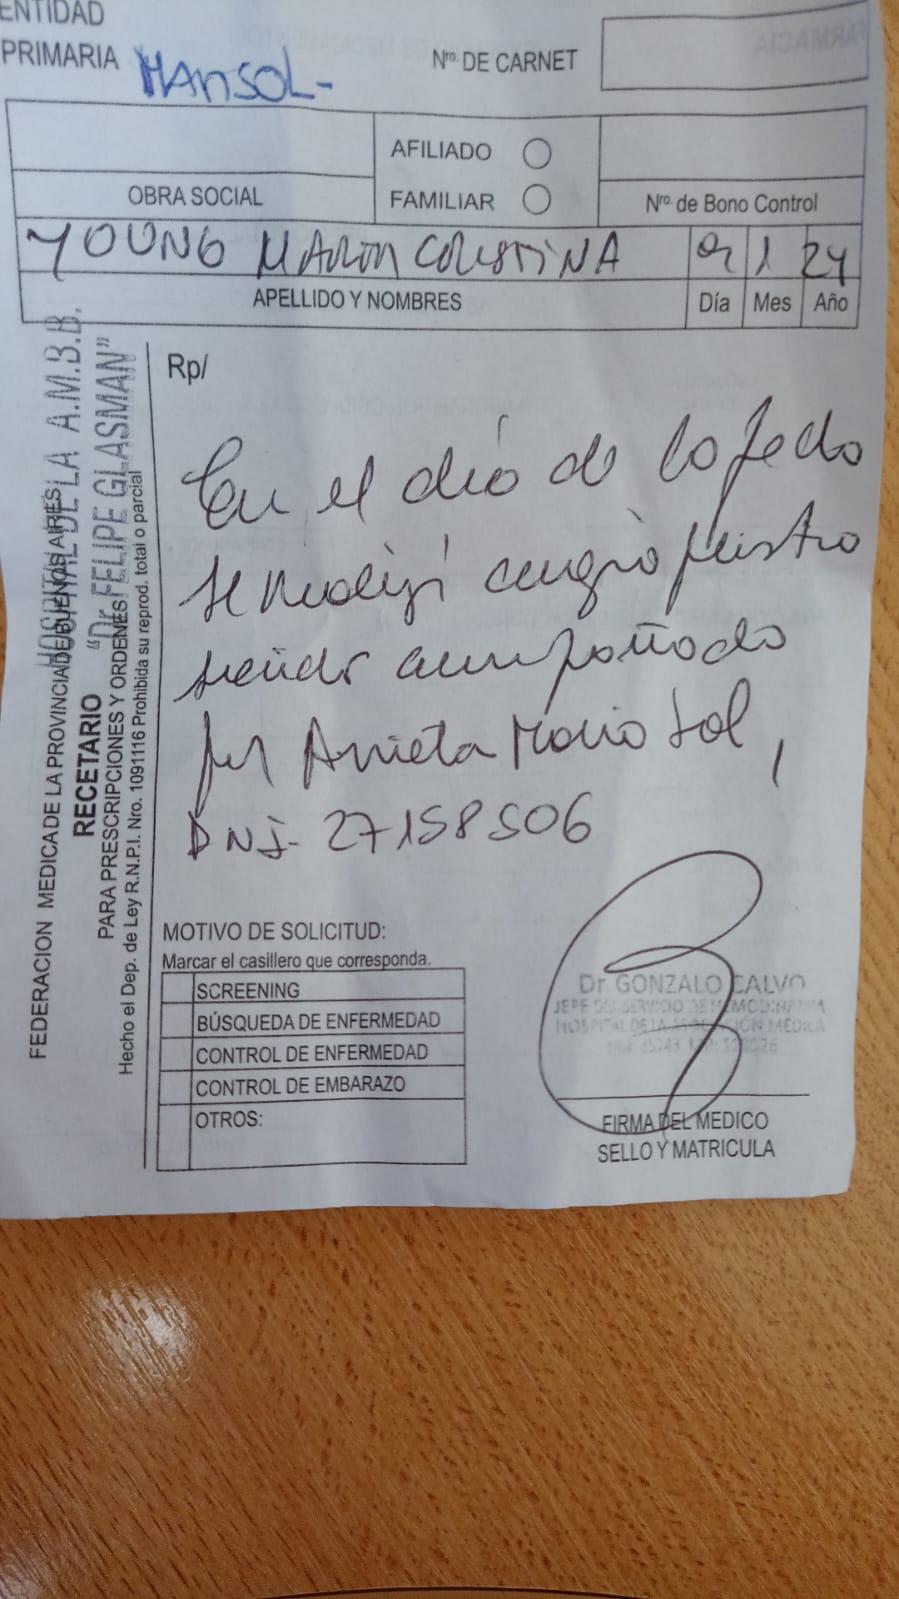 ENTIDAD
PRIMARIA MARISOL-
Nro. DE CARNET
FARMACIA
AFILIADO
FAMILIAR
OBRA SOCIAL
Nro. de Bono Control
YOUNG MARIA CRISTINA 1 24
APELLIDO Y NOMBRES Día Mes Año
HOSPITAL DE LA A.M.B.B.
"Dr. FELIPE GLASMAN"
FEDERACION MEDICA DE LA PROVINCIA DE BUENOS AIRES
RECETARIO
PARA PRESCRIPCIONES Y ORDENES
Hecho el Dep. de Ley R.N.P.I. Nro. 1091116 Prohibida su reprod. total o parcial
Rp/
En el día de la fecha
se realizó
siendo acompañada
por Arrieta Maria Sol,
DNI- 27158506
MOTIVO DE SOLICITUD:
Marcar el casillero que corresponda.
SCREENING
BÚSQUEDA DE ENFERMEDAD
CONTROL DE ENFERMEDAD
CONTROL DE EMBARAZO
OTROS:
Dr. GONZALO CALVO
JEFE DEL SERVICIO DE HEMODINAMIA
HOSPITAL DE LA ASOCIACIÓN MÉDICA
FIRMA DEL MEDICO
SELLO Y MATRICULA